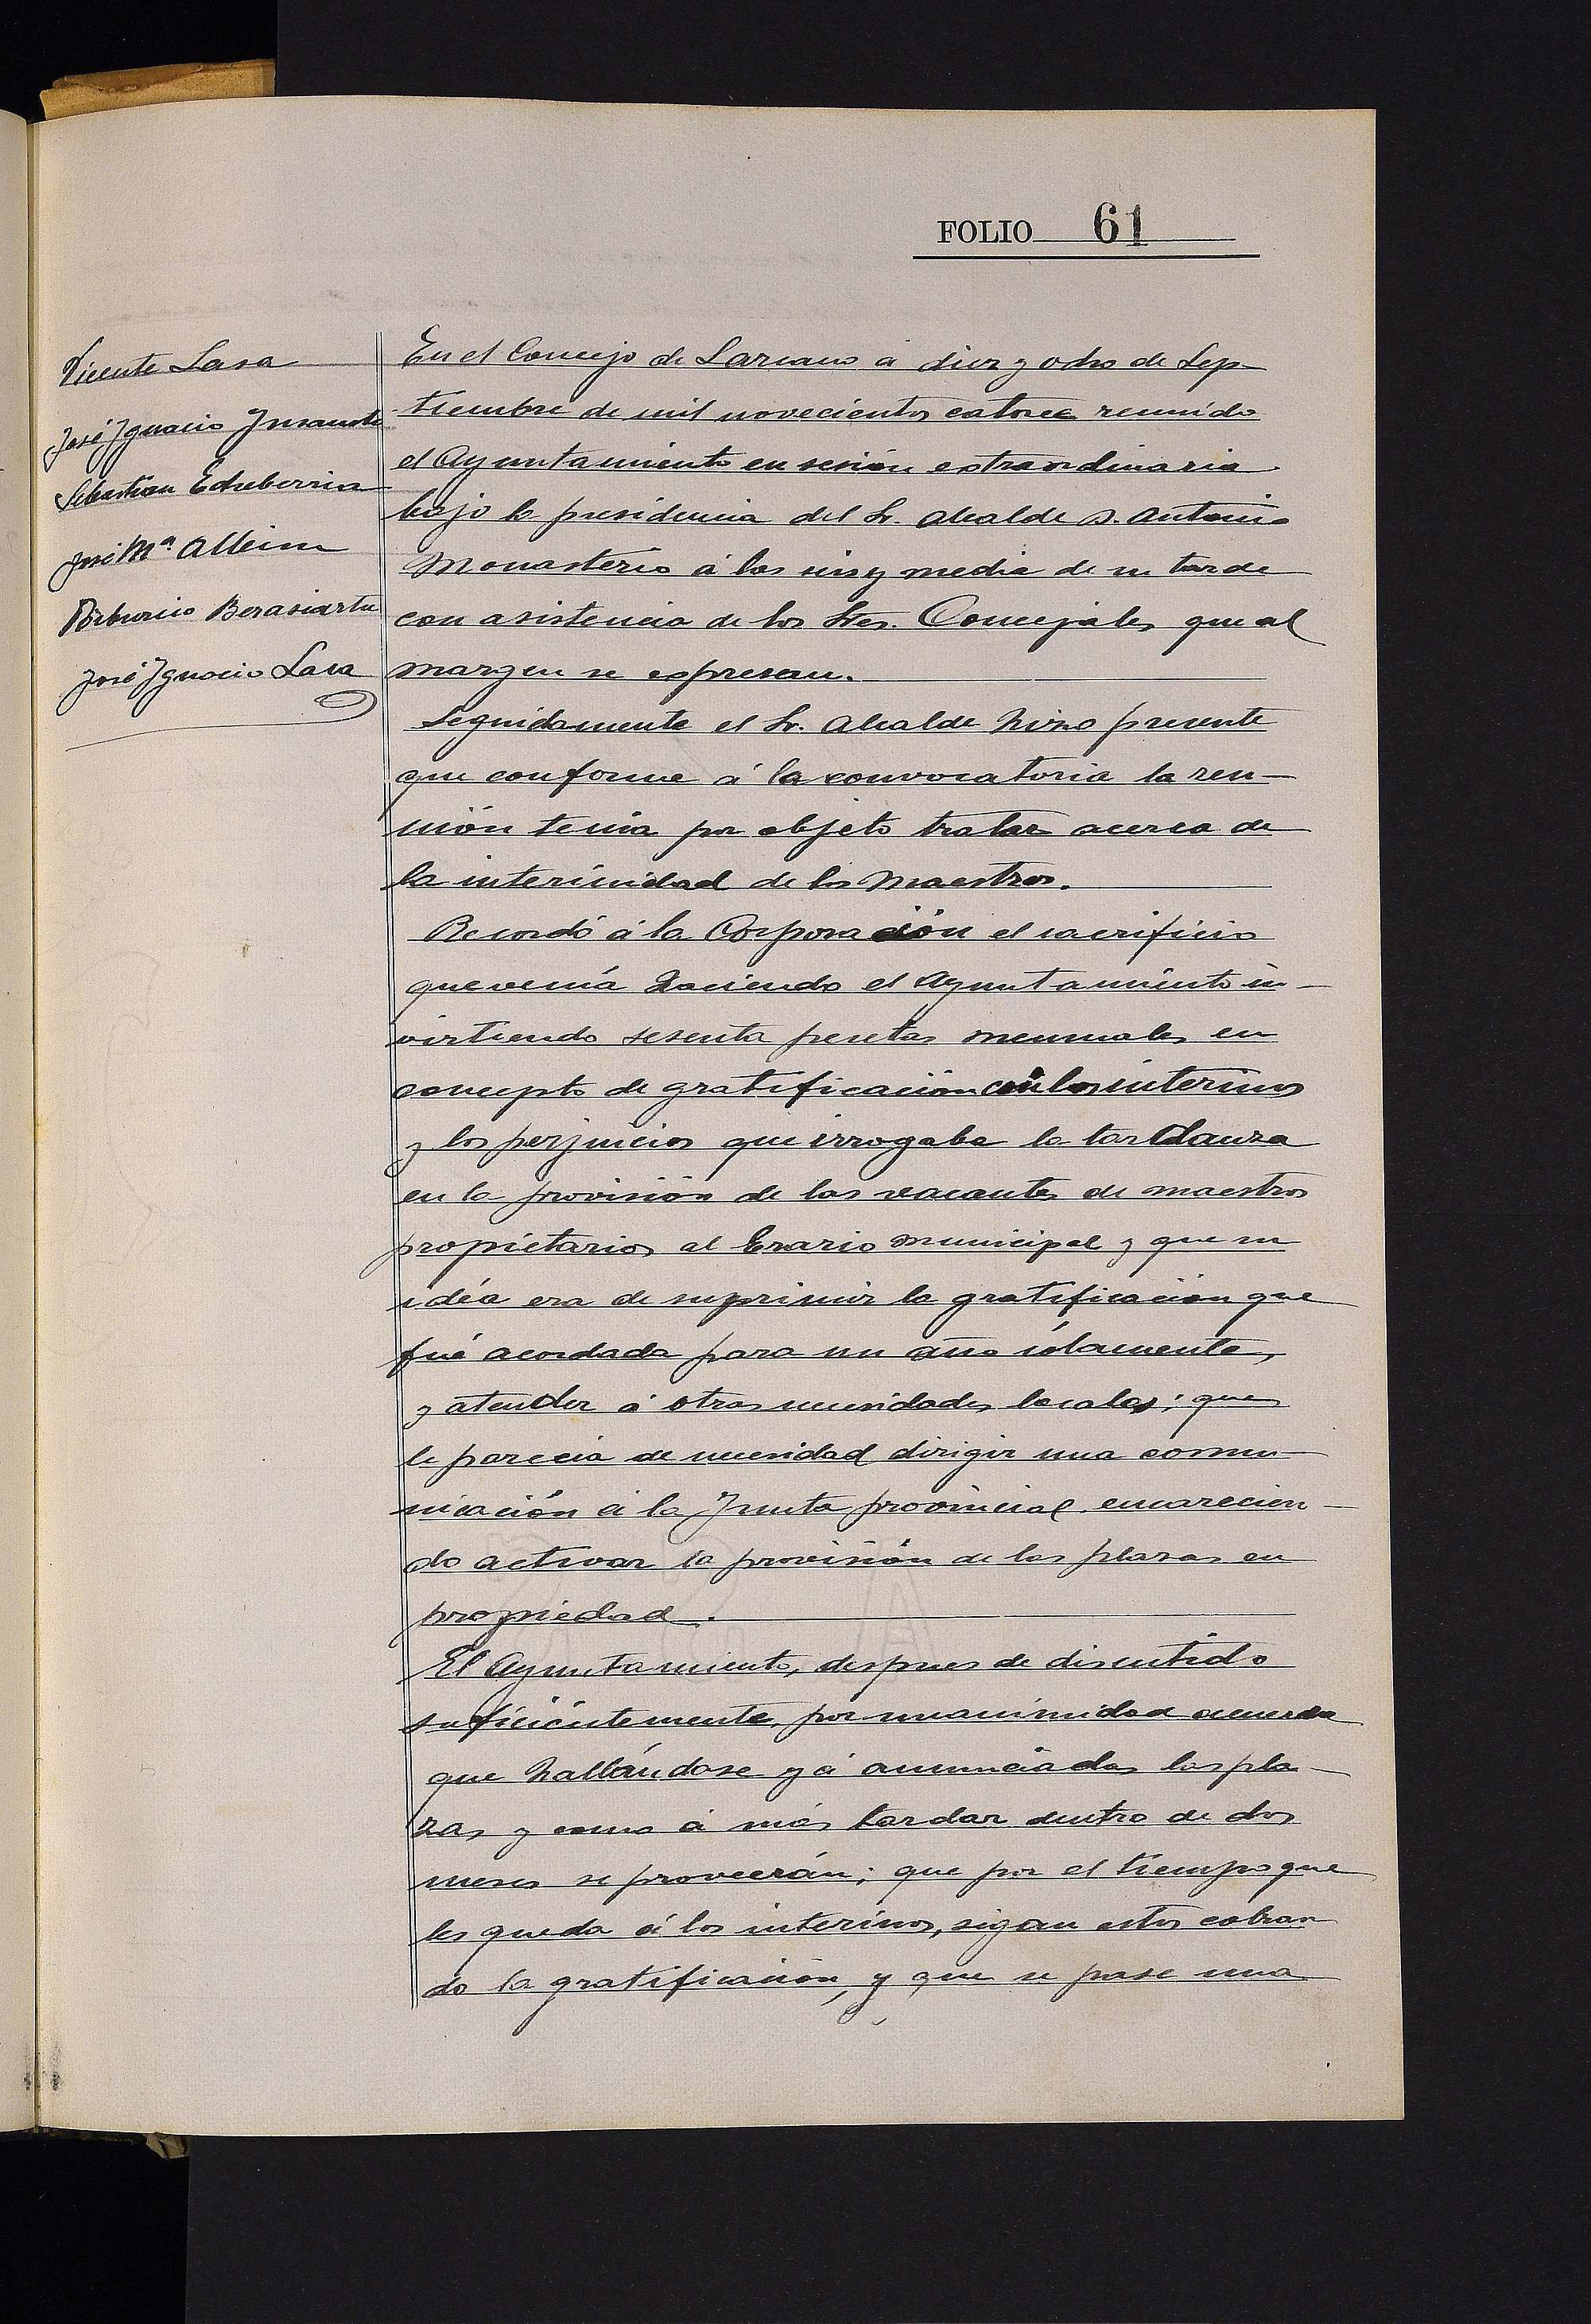 FOLIO 61
Vicente Lasa
José Ignacio Insausti
Sebastian Echeberria
José Mª Alleim
Tiburcio Berasiartu
José Ignacio Lasa
En el Concejo de Lazcano á diez y ocho de Sep-
tiembre de mil novecientos catorce reunido
el Ayuntamiento en sesión extraordinaria
bajo la presidencia del Sr. Alcalde D. Antonio
Monasterio á las seis y media de su tarde
con asistencia de los Sres. Concejales que al
margen se expresan.
Seguidamente el Sr. Alcalde hizo presente
que conforme á la convocatoria la reu-
nión tenia por objeto tratar acerca de
la interinidad de los Maestros.
Recordó á la Corporación el sacrificio
que venía haciendo el Ayuntamiento in-
virtiendo sesenta pesetas mensuales en
concepto de gratificación con los interinos
y los perjuicios que irrogaba la tardanza
en la provisión de las vacantes de maestros
propietarios al Erario municipal y que su
idéa era de suprimir la gratificación que
fué acordada para un año sólamente,
y atender á otras necesidades locales; que
le parecia de necesidad dirigir una comu-
nicación á la Junta provincial encarecien-
do activar la provisión de las plazas en
propiedad.
El Ayuntamiento, despues de discutido
suficientemente, por unanimidad acuerda
que hallándose yá anunciadas las pla-
zas y como á más tardar dentro de dos
meses se proveerán; que por el tiempo que
les queda á los interinos, sigan estos cobran
do la gratificación, y que se pase una